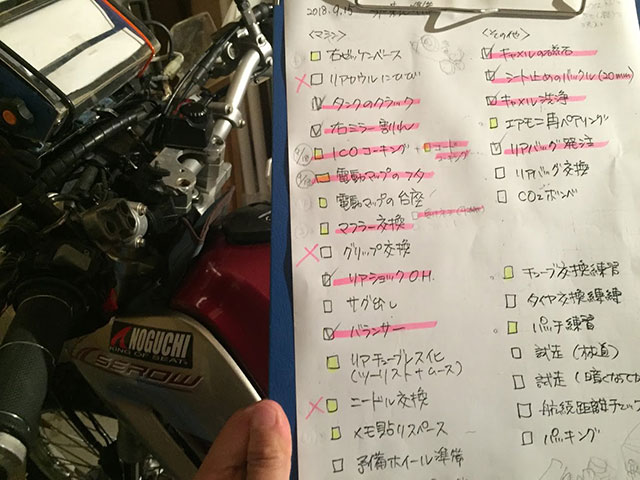 2018.9.15
<マシン>
右ゼッケンベース
リアカウル
タンクのクラック
右ミラー割れ
ICOコーキング + コード
電動マップのフタ
電動マップの台座
マフラー交換
グリップ交換
リアショックO.H.
サグ出し
バランサー
リアチューブレス化
(ツーリスト+ムース)
ニードル交換
メモ貼りスペース
予備ホイール準備
<その他>
キャメルの
シート止めのバックル(20mm)
キャメル洗浄
エアモニ再ペアリング
リアバッグ発注
リアバッグ交換
CO2ボンベ
チューブ交換練習
タイヤ交換練習
パッチ練習
試走(林道)
試走
航続距離チェック
パッキング
NOGUCHI
KING OF SEAT
SEROW